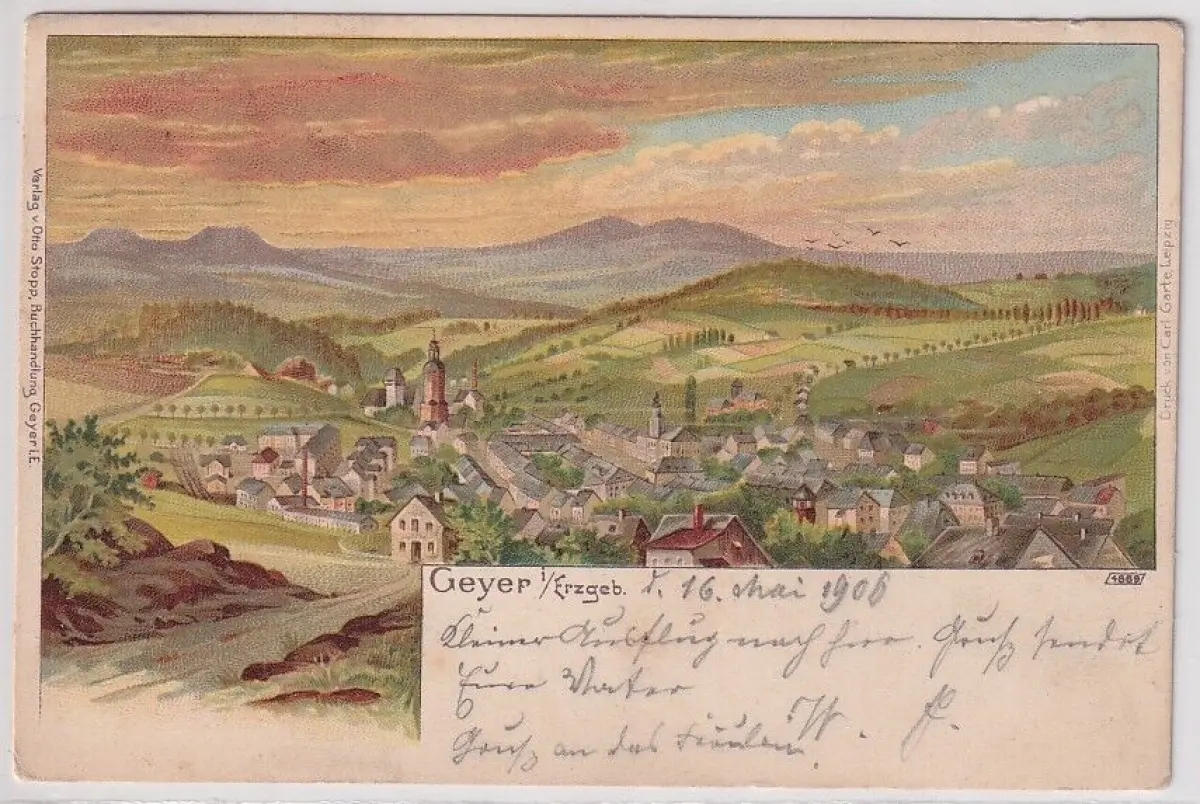 Verlag v. Otto Stopp, Buchhandlung, Geyer i. E.
Druck von Carl Garte, Leipzig
4889
Geyer i/Erzgeb. d. 16. Mai 1906
Kleiner Ausflug nach hier. Gruß sendet
Eure Vater
Gruß an das Fräulein